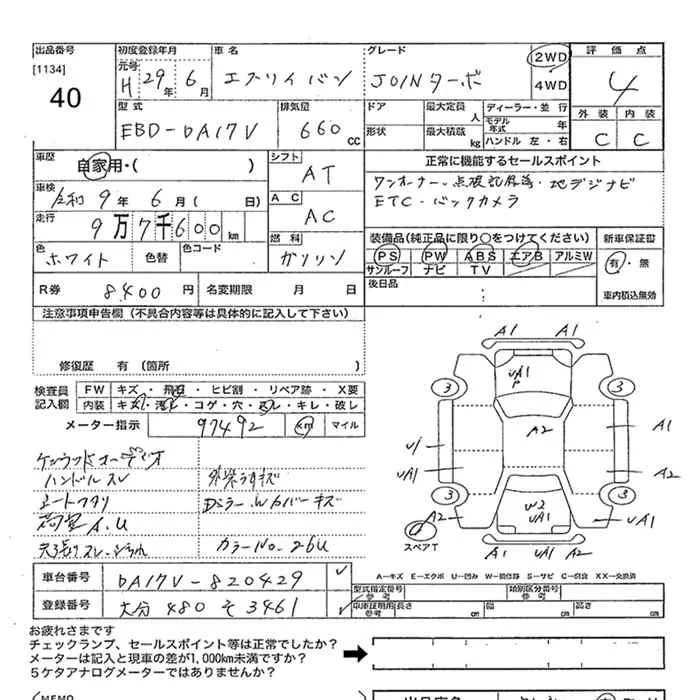 出品番号 初度登録年月 車名 グレード 評価点
[1134] 40
元号 H 29年 6月 エブリイバン JOINターボ 2WD 4WD 4
型式 EBD-DA17V 排気量 660cc
ドア 形状 最大定員 人 最大積載 kg ディーラー・並行 モデル年式 年 ハンドル 左・右
外装 内装
C C
車歴 自家用・( ) シフト AT
正常に機能するセールスポイント
ワンオーナー・点検記録簿・地デジナビ
ETC・バックカメラ
車検 令和 9年 6月( 日) AC AC
走行 9万7千600km
色 ホワイト 色替 色コード 燃料 ガソリン
装備品(純正品に限り○をつけてください) 新車保証書
PS PW ABS エアB アルミW 有・無
サンルーフ ナビ TV
車内積込無効
後日品
R券 8400円 名変期限 月 日
注意事項申告欄(不具合内容等は具体的に記入して下さい)
修復歴 有(箇所 )
検査員記入欄 FW キズ・飛石・ヒビ割・リペア跡・X要
内装 キズ・汚れ・コゲ・穴・スレ・キレ・破レ
メーター指示 97492 km マイル
ケンウッドオーディオ
ハンドルスレ 外装うすキズ
シートフタリ Dミラー.Wカバーキズ
荷室A.U
カラーNo.26U
A1 A1
UA1
3 3
A2 A1
UA1 A2
3 3
A2 W2 UA1 UA1
スペアT A1 UA1 A2
A-キズ E-エクボ U-凹み W-補修跡 S-サビ C-腐食 XX-交換済
車台番号 DA17V-820429
登録番号 大分 480 そ 3461
型式指定番号 参考 類別区分番号 参考
車庫証明用 参考 長さ cm 幅 cm 高さ cm
お疲れさまです
チェックランプ、セールスポイント等は正常でしたか?
メーターは記入と現車の差が1,000km未満ですか?
5ケタアナログメーターではありませんか?
(MEMO